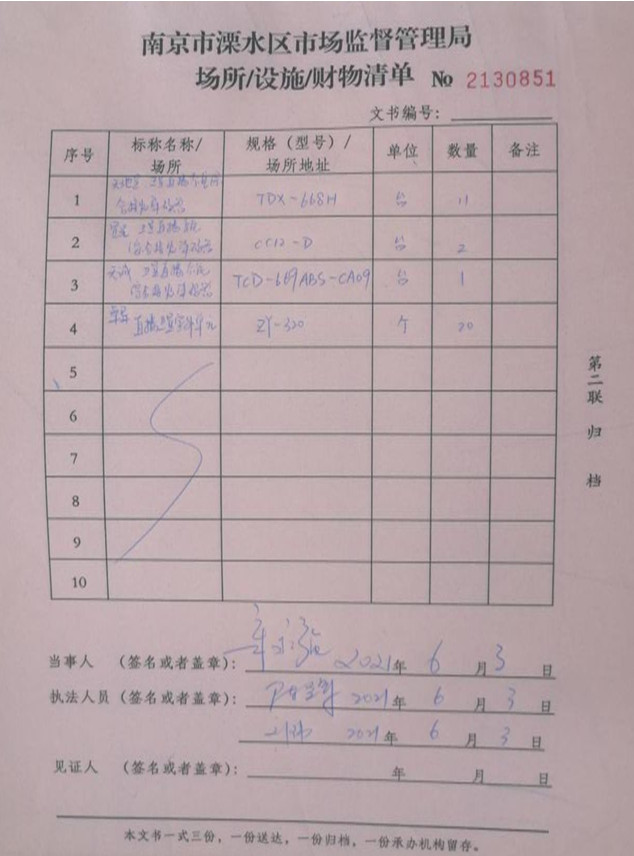 南京市溧水区市场监督管理局
场所/设施/财物清单 № 2130851
文书编号：
序号 标称名称/场所 规格（型号）/场所地址 单位 数量 备注
1 TDX-668H 台 11
2 CC12-D 台 2
3 TCD-669ABS-CA09 台 1
4 ZY-320 个 20
5
6
7
8
9
10
第二联 归 档
当事人 （签名或者盖章）： 2021年 6 月 3 日
执法人员 （签名或者盖章）： 2021年 6 月 3 日
2021年 6 月 3 日
见证人 （签名或者盖章）： 年 月 日
本文书一式三份，一份送达，一份归档，一份承办机构留存。